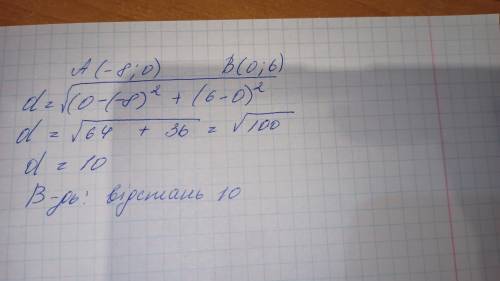 A(-8;0) B(0;6)
d = √(0-(-8)² + (6-0)²
d = √64 + 36 = √100
d = 10
В-дь: відстань 10